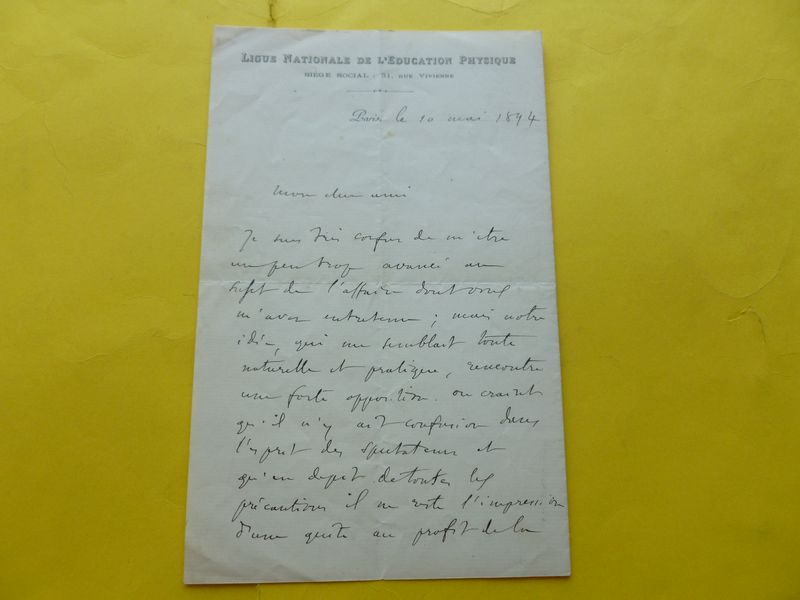 LIGUE NATIONALE DE L'ÉDUCATION PHYSIQUE
SIÈGE SOCIAL : 51, RUE VIVIENNE
Paris, le 10 mai 1894
Mon cher ami
Je suis très confus de m'être
un peu trop avancé au
sujet de l'affaire dont vous
m'avez entretenu ; mais notre
idée, qui me semblait toute
naturelle et pratique, rencontre
une forte opposition. on craint
qu'il n'y ait confusion dans
l'esprit des spectateurs et
qu'en dépit de toutes les
précautions il ne reste l'impression
d'une quête au profit de la